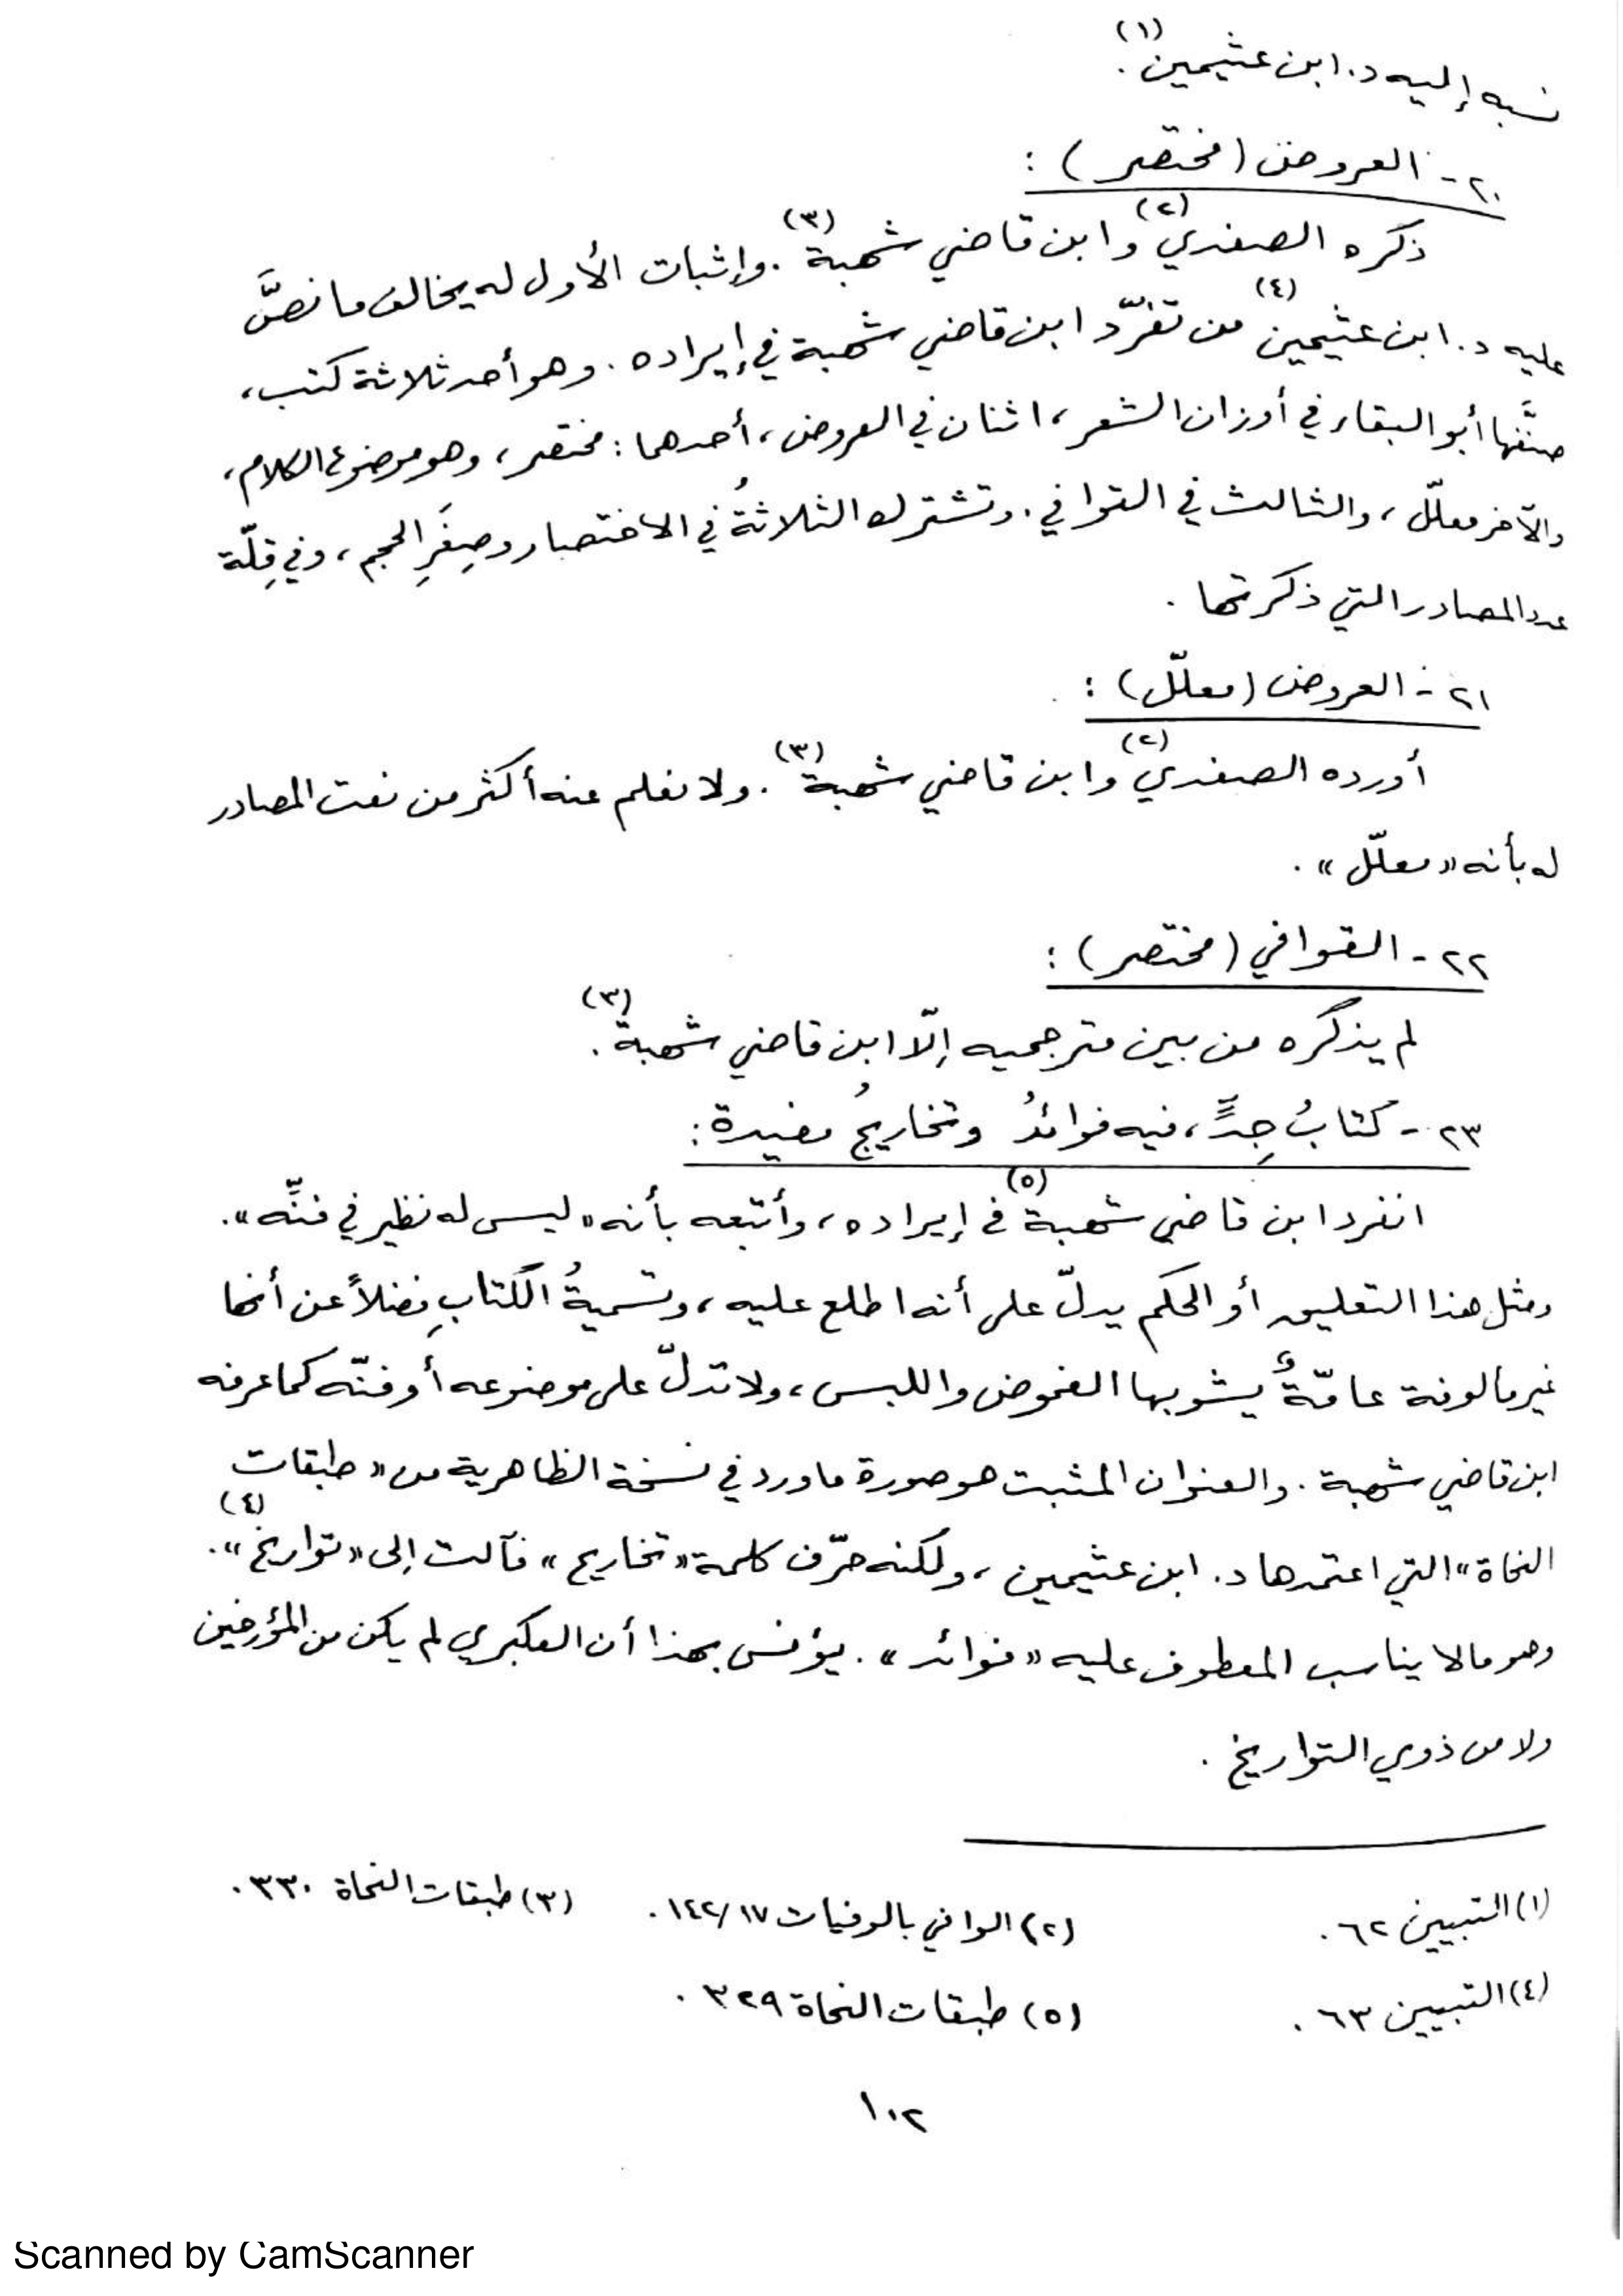 نسبه إليه د. ابن عثيمين(١).
٢٠- العروض (مختصر) :
ذكره الصفدي(٢) وابن قاضي شهبة(٣). وإثبات الأول له يخالف ما نصَّ
عليه د. ابن عثيمين(٤) من تفرّد ابن قاضي شهبة في إيراده. وهو أحد ثلاثة كتب،
صنَّفها أبو البقاء في أوزان الشعر، اثنان في العروض، أحدهما: مختصر، وهو موضوع الكلام،
والآخر معلّل، والثالث في القوافي. وتشترك الثلاثةُ في الاختصار وصِغَرِ الحجم، وفي قِلّة
عدد المصادر التي ذكرتها.
٢١- العروض (معلّل) :
أورده الصفدي(٢) وابن قاضي شهبة(٣). ولا نعلم عنه أكثر من نعت المصادر
له بأنه «معلّل».
٢٢- القوافي (مختصر) :
لم يذكره من بين مترجميه إلّا ابن قاضي شهبة(٣).
٢٣- كتابُ جِدٍّ، فيه فوائدُ وتخاريجُ مفيدة:
انفرد ابن قاضي شهبة(٥) في إيراده، وأتبعه بأنه «ليس له نظير في فنِّه».
ومثل هذا التعليق أو الحكم يدلّ على أنه اطلع عليه، وتسميةُ الكتابِ فضلاً عن أنها
غير مألوفة عامّةٌ يشوبها الغموض واللبس، ولا تدلّ على موضوعه أو فنّه كما عرفه
ابن قاضي شهبة. والعنوان المثبت هو صورة ما ورد في نسخة الظاهرية من «طبقات
النحاة» التي اعتمدها د. ابن عثيمين، ولكنه حرّف كلمة «تخاريج» فآلت إلى «تواريخ»(٤).
وهو ما لا يناسب المعطوف عليه «فوائد». يؤنس بهذا أن العكبري لم يكن من المؤرخين
ولا من ذوي التواريخ.
(١) التبيين ٦٢. (٢) الوافي بالوفيات ١٤٢/١٧. (٣) طبقات النحاة ٣٣٠.
(٤) التبيين ٦٣. (٥) طبقات النحاة ٣٢٩.
١٠٢
Scanned by CamScanner